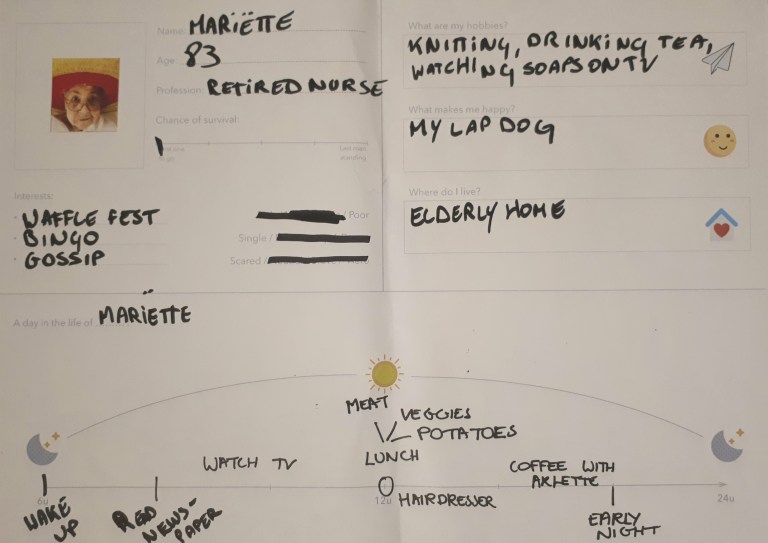 Name: MARIËTTE
Age: 83
Profession: RETIRED NURSE
Chance of survival:
Last man
standing
Interests:
· WAFFLE FEST
· BINGO
· GOSSIP
/ Poor
Single /
Scared /
What are my hobbies?
KNITTING, DRINKING TEA,
WATCHING SOAPS ON TV
What makes me happy?
MY LAP DOG
Where do I live?
ELDERLY HOME
A day in the life of MARIËTTE
MEAT
VEGGIES
POTATOES
LUNCH
WATCH TV
COFFEE WITH
ARLETTE
6u
12u
24u
WAKE
UP
RED
NEWS-
PAPER
HAIRDRESSER
EARLY
NIGHT